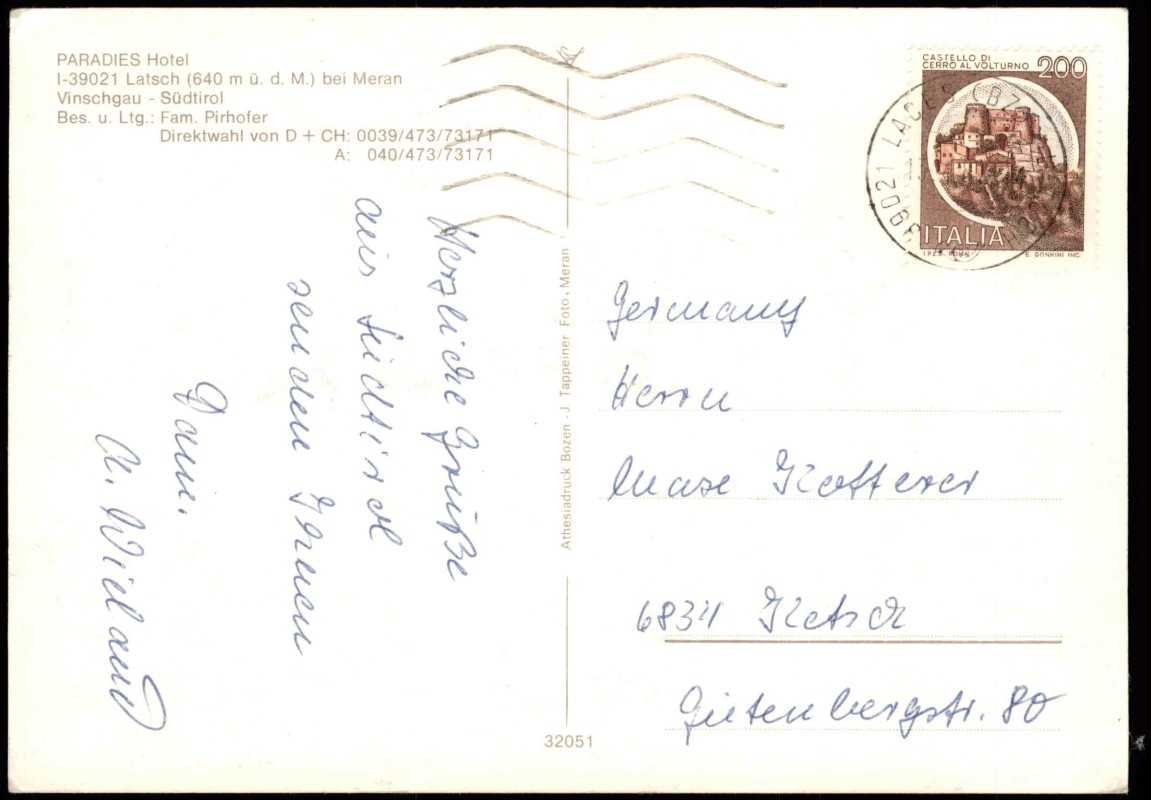 PARADIES Hotel
I-39021 Latsch (640 m ü. d. M.) bei Meran
Vinschgau - Südtirol
Bes. u. Ltg.: Fam. Pirhofer
Direktwahl von D + CH: 0039/473/73171
A: 040/473/73171
Herzliche Grüße
aus Südtirol
senden Ihnen
Fam.
A. Wieland
Athesiadruck Bozen - J. Tappeiner Foto, Meran
32051
CASTELLO DI
CERRO AL VOLTURNO 200
ITALIA
I.P.Z.S. ROMA E. DONNINI INC.
39021 LACES (BZ)
Germany
Herrn
Maxe Kotterer
6834 Ketsch
Gutenbergstr. 80